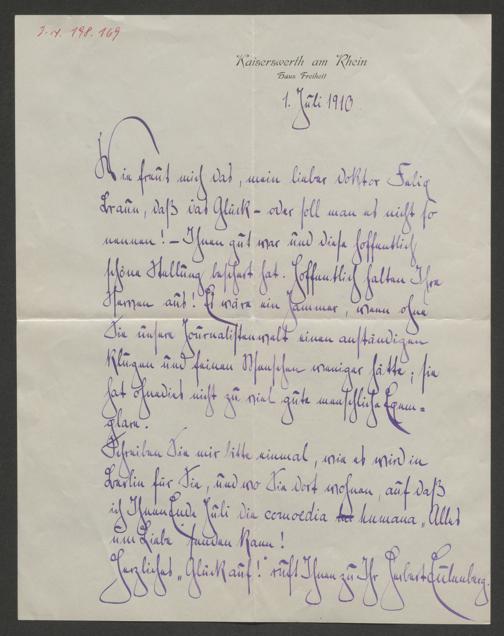 J. N. 198.169
Kaiserswerth am Rhein
Haus Freiheit
1. Juli 1910
Wie freut mich das, mein lieber Doktor Felix
Braun, daß das Glück – oder soll man es nicht so
nennen! – Ihnen gut war und diese hoffentlich
schöne Stellung beschert hat. Hoffentlich halten Ihre
Nerven aus! Es wäre ein Jammer, wenn ohne
Sie unsere Journalistenwelt einen anständigen
klugen und feinen Menschen weniger hätte; sie
hat ohnedies nicht zu viel gute menschliche Exem=
plare.
Schreiben Sie mir bitte einmal, wie es wird in
Berlin für Sie, und wo Sie dort wohnen, auf daß
ich Ihnen Ende Juli die comoedia humana „Alles
um Liebe" senden kann!
Herzliches „Glück auf!" ruft Ihnen zu Ihr Herbert Eulenberg.